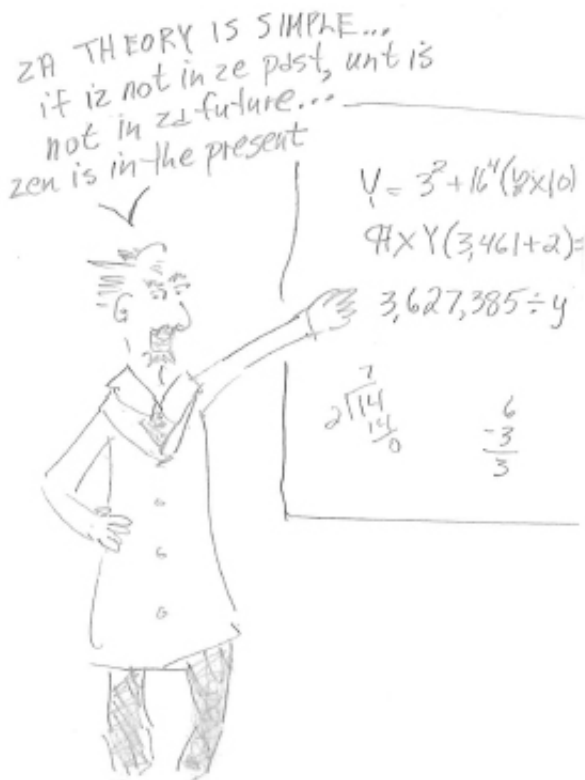 ZA THEORY IS SIMPLE...
if iz not in ze past, unt is
not in za future...
zen is in the present
Y = 3² + 16⁴(
3,461+2)=
3,627,385 ÷ y
7
2√14
14
0
6
-3
3